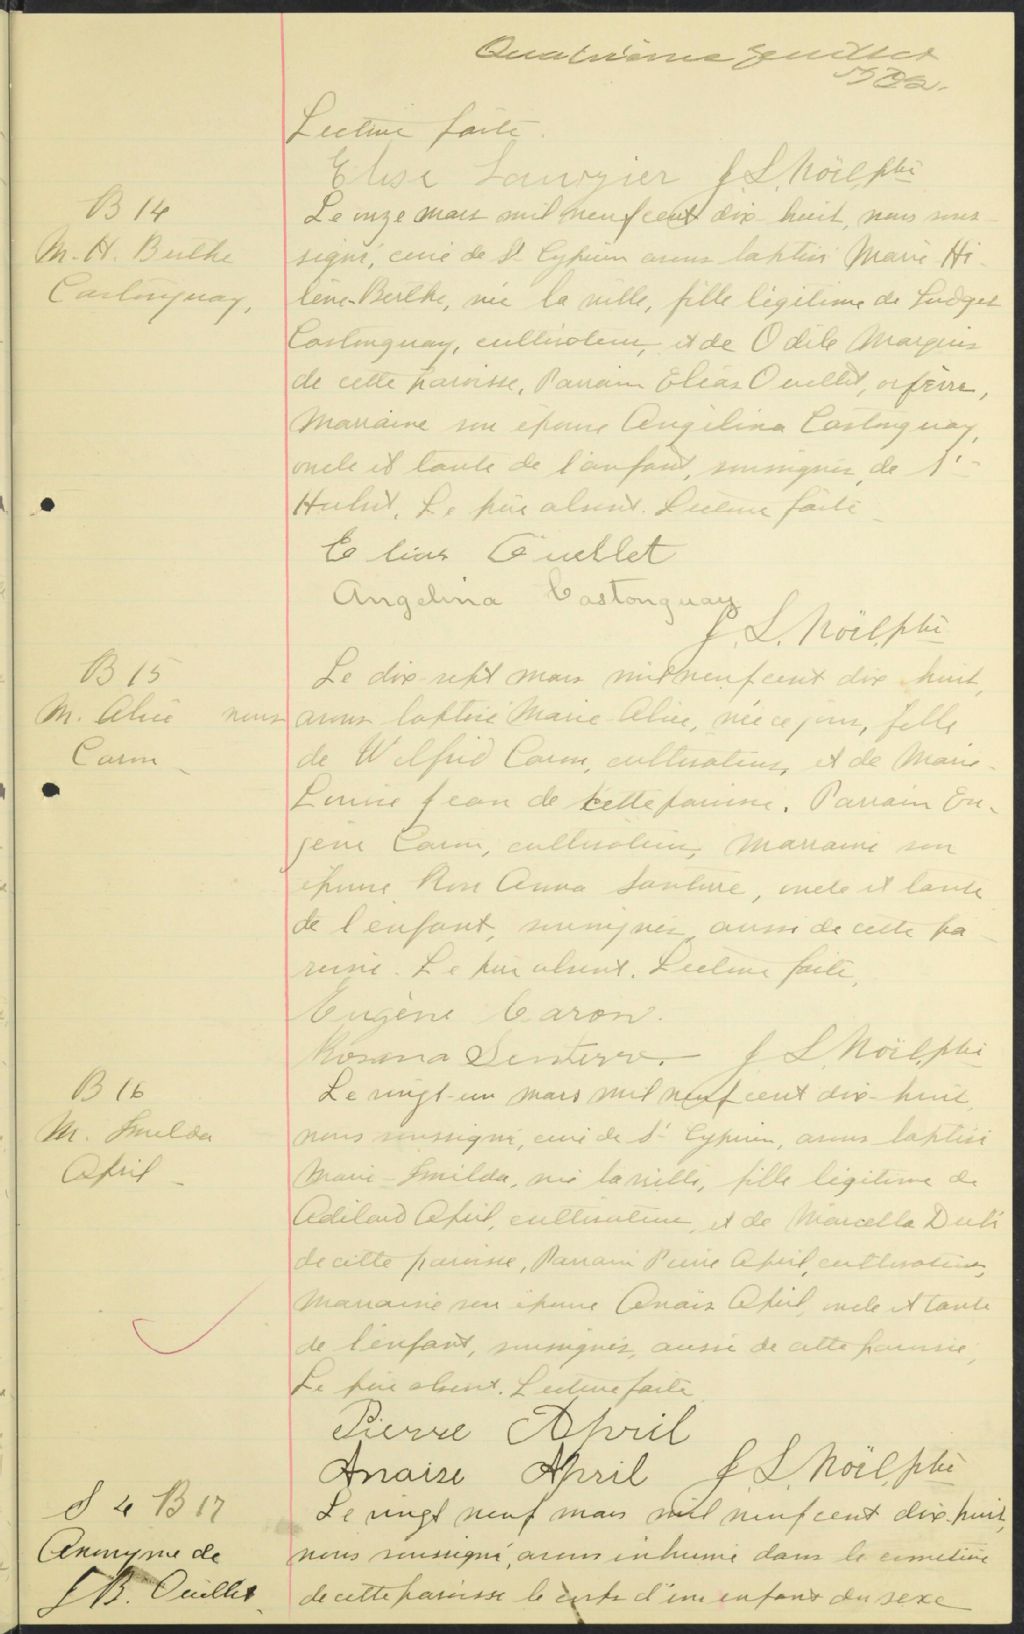 Quatrième feuillet
Lecture faite.
Elise J. L. Noël, ptre
B 14
M. H. Berthe
Castonguay,
Le onze mars mil neuf cent dix-huit, nous sous-
signé, curé de St Cyprien avons baptisé Marie Hé-
lène-Berthe, née la veille, fille légitime de
Castonguay, cultivateur, et de Odile Marquis
de cette paroisse, Parrain Elias Ouellet, orfèvre,
Marraine son épouse Angélina Castonguay,
oncle et tante de l'enfant, soussignés, de St-
Hubert. Le père absent. Lecture faite
Elias Ouellet
Angelina Castonguay
J. L. Noël, ptre
B 15
M. Alice
Caron
Le dix-sept mars mil neuf cent dix-huit,
nous avons baptisé Marie-Alice, née ce jour, fille
de Wilfrid Caron, cultivateur, et de Marie-
Louise Jean de cette paroisse. Parrain Eu-
gène Caron, cultivateur, Marraine son
épouse Rose Anna Santerre, oncle et tante
de l'enfant, soussignés, aussi de cette pa-
roisse. Le père absent. Lecture faite,
Eugène Caron.
Rosanna Senterre. J L Noël, ptre
B 16
M. Imelda
April
Le vingt-un mars mil neuf cent dix-huit,
nous soussigné, curé de St Cyprien, avons baptisé
Marie-Imilda, née la veille, fille légitime de
Adélard April, cultivateur, et de Marcella Dubé
de cette paroisse, Parrain Pierre April, cultivateur,
Marraine son épouse Anaïs April, oncle et tante
de l'enfant, soussignés, aussi de cette paroisse,
Le père absent. Lecture faite
Pierre April
Anaise April J. L. Noël, ptre
S 4 B 17
Anonyme de
J B. Ouellet
Le vingt neuf mars mil neuf cent dix-huit,
nous soussigné, avons inhumé dans le cimetière
de cette paroisse le corps d'un enfant du sexe